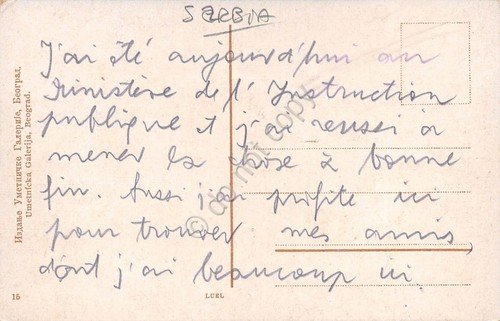 SERBIA
J'ai été aujourd'hui au
Ministère de l'Instruction
publique et j'ai reussi à
mener la chose à bonne
fin. Aussi j'ai profite ici
pour trouver mes amis,
dont j'ai beaucoup ici.
Издање Уметничке Галерије, Београд.
Umetnička Galerija, Beograd.
15
LUEL
do not copy